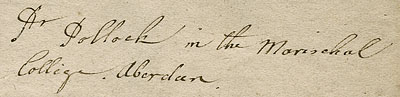 Mr Pollock in the Marischal
College. Aberdeen.